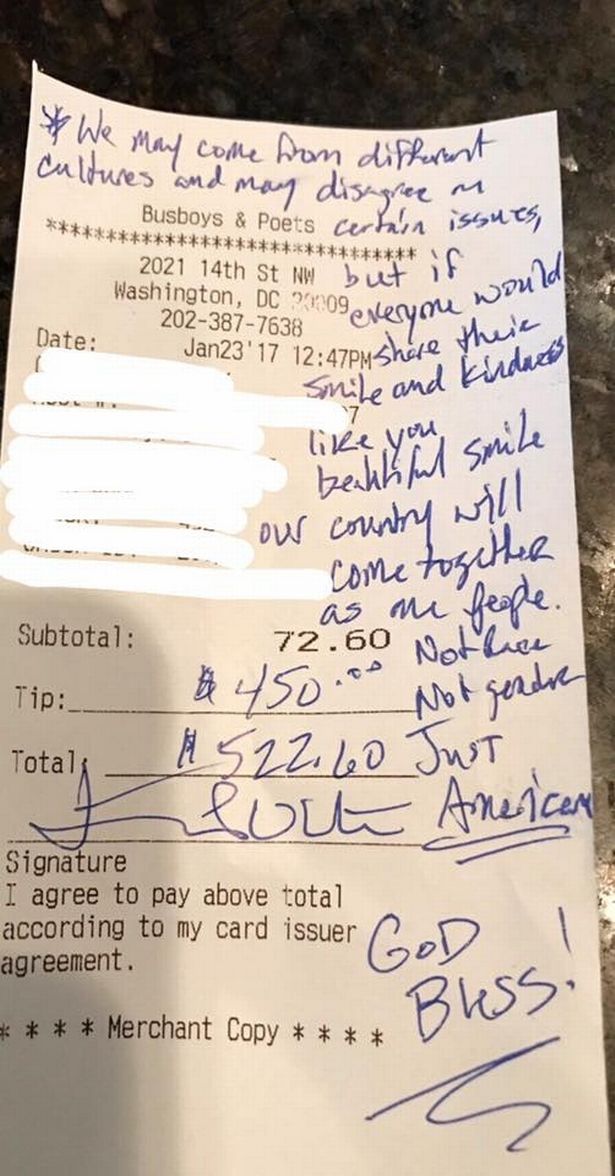 * We may come from different
cultures and may disagree on
Busboys & Poets certain issues,
******************************
2021 14th St NW but if
Washington, DC 20009 everyone would
202-387-7638
Date: Jan23'17 12:47PM share their
smile and kindness
7
like you
beautiful smile
our country will
come together
as one people.
Subtotal: 72.60 Not race
Tip: $450.00 Not gender
Total: $522.60 Just
American
Signature
I agree to pay above total
according to my card issuer
agreement.
GOD
Bless!
* * * * Merchant Copy * * * *